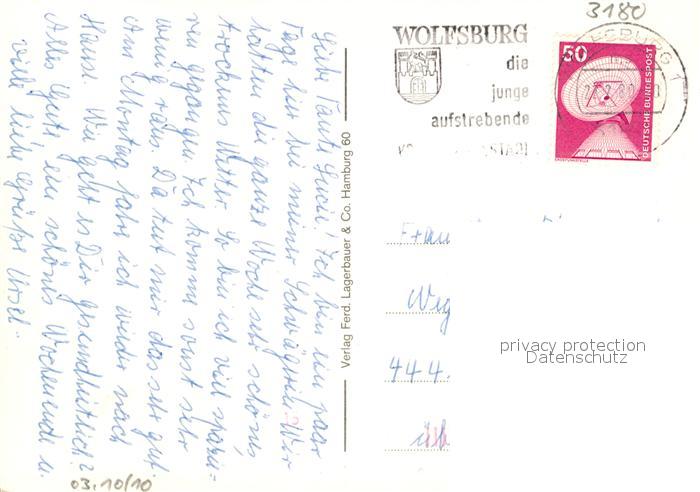 Liebe Tante Lucie! Ich bin ein paar
Tage hier bei meiner Schwägerin. Wir
hatten die ganze Woche sehr schönes,
trockenes Wetter. So bin ich viel spazie-
ren gegangen. Ich komme sonst sehr
wenig raus. Da tut mir das sehr gut.
Am Montag fahre ich wieder nach
Hause. Wie geht es Dir gesundheitlich?
Alles Gute, ein schönes Wochenende u.
viele liebe Grüße Ursel.
03.10/10
Verlag Ferd. Lagerbauer & Co. Hamburg 60
3180
WOLFSBURG
die
junge
aufstrebende
50
DEUTSCHE BUNDESPOST
Frau
Weg
444.
privacy protection
Datenschutz